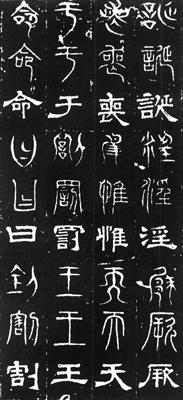 誕誕誕淫淫淫厥厥厥
喪喪喪惟惟惟天天天
于于于罰罰罰王王王
命命命曰曰曰割割割